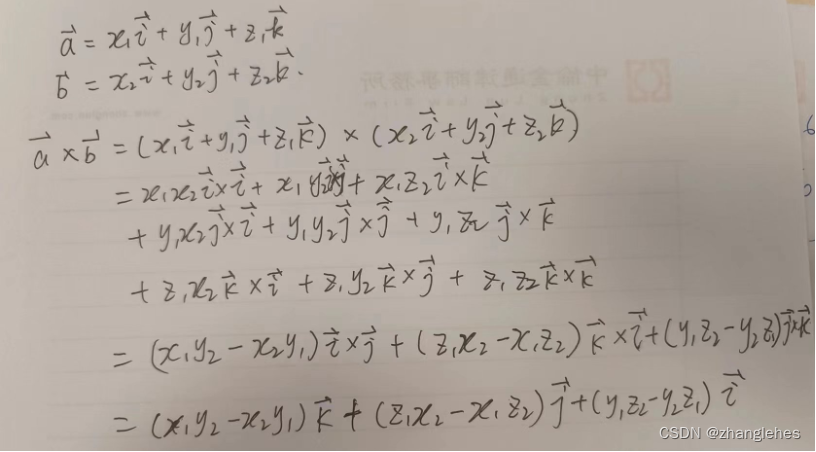 a⃗ = x₁i⃗ + y₁j⃗ + z₁k⃗
b⃗ = x₂i⃗ + y₂j⃗ + z₂k⃗.
a⃗ × b⃗ = (x₁i⃗ + y₁j⃗ + z₁k⃗) × (x₂i⃗ + y₂j⃗ + z₂k⃗)
= x₁x₂i⃗×i⃗ + x₁y₂i⃗×j⃗ + x₁z₂i⃗×k⃗
+ y₁x₂j⃗×i⃗ + y₁y₂j⃗×j⃗ + y₁z₂j⃗×k⃗
+ z₁x₂k⃗×i⃗ + z₁y₂k⃗×j⃗ + z₁z₂k⃗×k⃗
= (x₁y₂ − x₂y₁)i⃗×j⃗ + (z₁x₂ − x₁z₂)k⃗×i⃗ + (y₁z₂ − y₂z₁)j⃗×k⃗
= (x₁y₂ − x₂y₁)k⃗ + (z₁x₂ − x₁z₂)j⃗ + (y₁z₂ − y₂z₁)i⃗
CSDN @zhanglehes